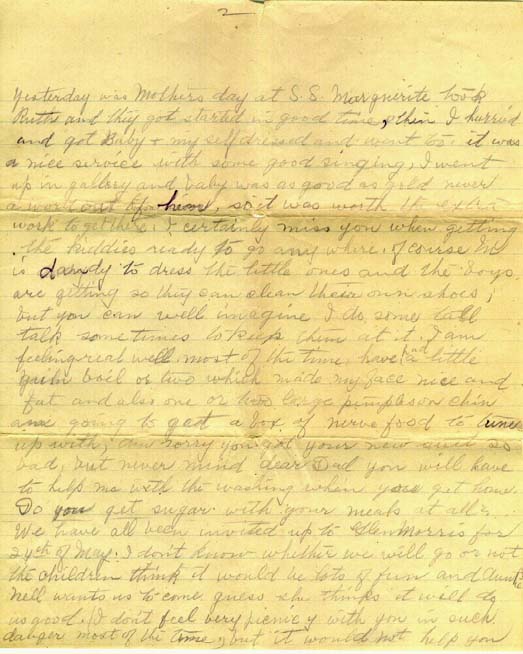 2
yesterday was Mothers day at S.S. Marguerite took
Ruth and they got started in good time, then I hurried
and got Baby + my self dressed and went to. it was
a nice service with some good singing, I went
up in gallery and baby was as good as gold never
a word out of him, so it was worth the extra
work to get there. I certainly miss you when getting
the kiddies ready to go any where, of course M
is dandy to dress the little ones and the boys
are getting so they can clean their own shoes,
but you can well imagine I do some tall
talk sometimes to keep them at it. I am
feeling real well most of the time, have had a little
boil or two which made my face nice and
fat and also one or two large pimples on chin
am going to get a box of nerve food to tune
up with, am sorry you got your new suit so
bad, but never mind dear Dad you will have
to help me with the washing when you get home.
Do you get sugar with your meals at all?
We have all been invited up to Glen Morris for
24th of May. I don't know whether we will go or not
the children think it would be lots of fun and Aunt
Nell wants us to come guess she thinks it will do
us good, I don't feel very picnicy with you in such
danger most of the time, but it would not help you